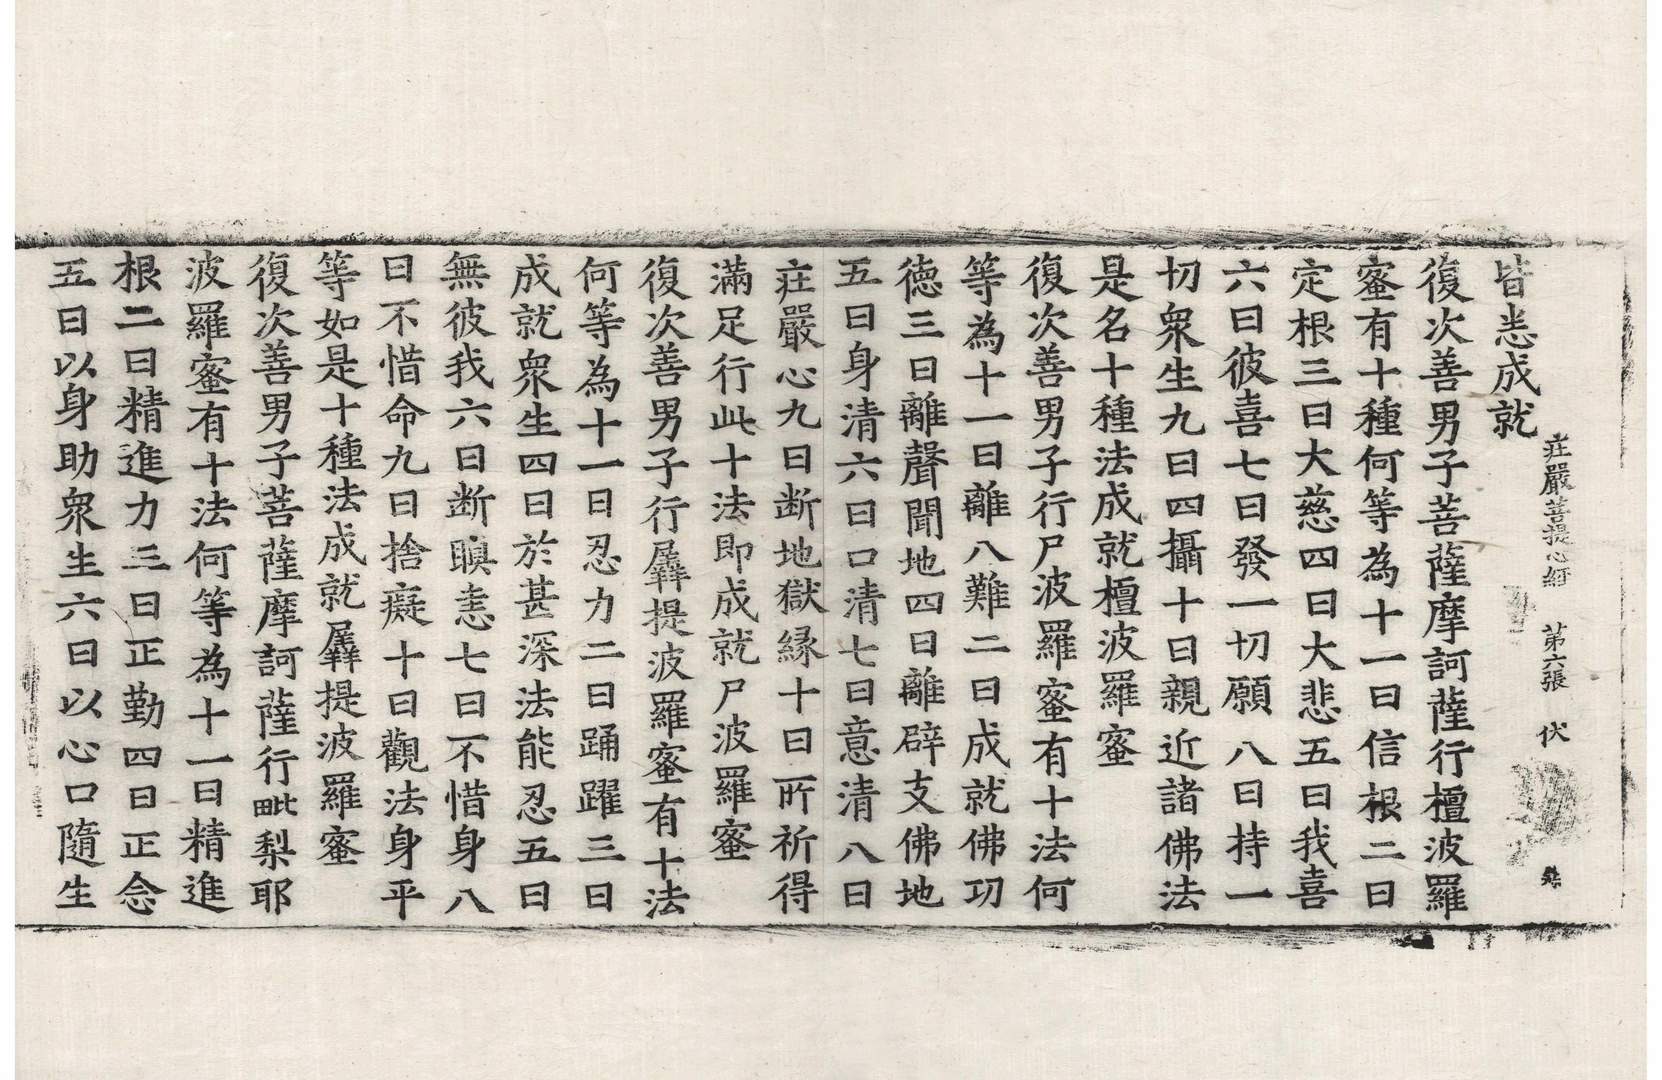 莊嚴菩提心經　第六張　伏
皆悉成就
復次善男子菩薩摩訶薩行檀波羅
蜜有十種何等為十一曰信根二曰
定根三曰大慈四曰大悲五曰我喜
六曰彼喜七曰發一切願八曰持一
切衆生九曰四攝十曰親近諸佛法
是名十種法成就檀波羅蜜
復次善男子行尸波羅蜜有十法何
等為十一曰離八難二曰成就佛功
德三曰離聲聞地四曰離辟支佛地
五曰身清六曰口清七曰意清八曰
莊嚴心九曰断地獄緣十曰所祈得
滿足行此十法即成就尸波羅蜜
復次善男子行羼提波羅蜜有十法
何等為十一曰忍力二曰踊躍三曰
成就衆生四曰於甚深法能忍五曰
無彼我六曰断瞋恚七曰不惜身八
曰不惜命九曰捨癡十曰觀法身平
等如是十種法成就羼提波羅蜜
復次善男子菩薩摩訶薩行毗梨耶
波羅蜜有十法何等為十一曰精進
根二曰精進力三曰正勤四曰正念
五曰以身助衆生六曰以心口隨生